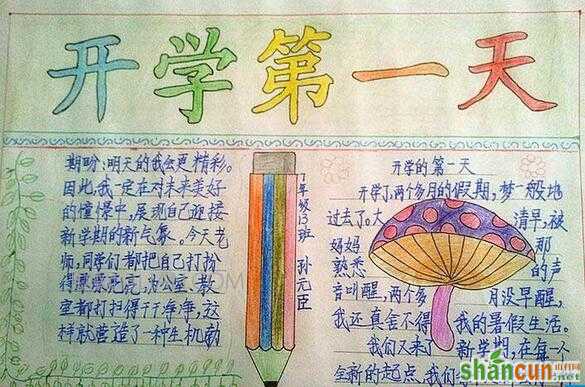 开学第一天
期盼:明天的我会更精彩。
因此,我一定在对未来美好
的憧憬中,展现自己迎接
新学期的新气象。今天老
师,同学们都把自己打扮
得漂漂亮亮,办公室、教
室都打扫得干干净净,这
样就营造了一种生机勃
7年级13班 孙元臣
开学的第一天
开学了,两个多月的假期,梦一般地
过去了。大清早,被
妈妈那
熟悉的声
音叫醒,两个多月没早醒,
我还真舍不得我的暑假生活。
我们又来了新学期,在每一个
全新的起点,我们
山村网
shancun
.net